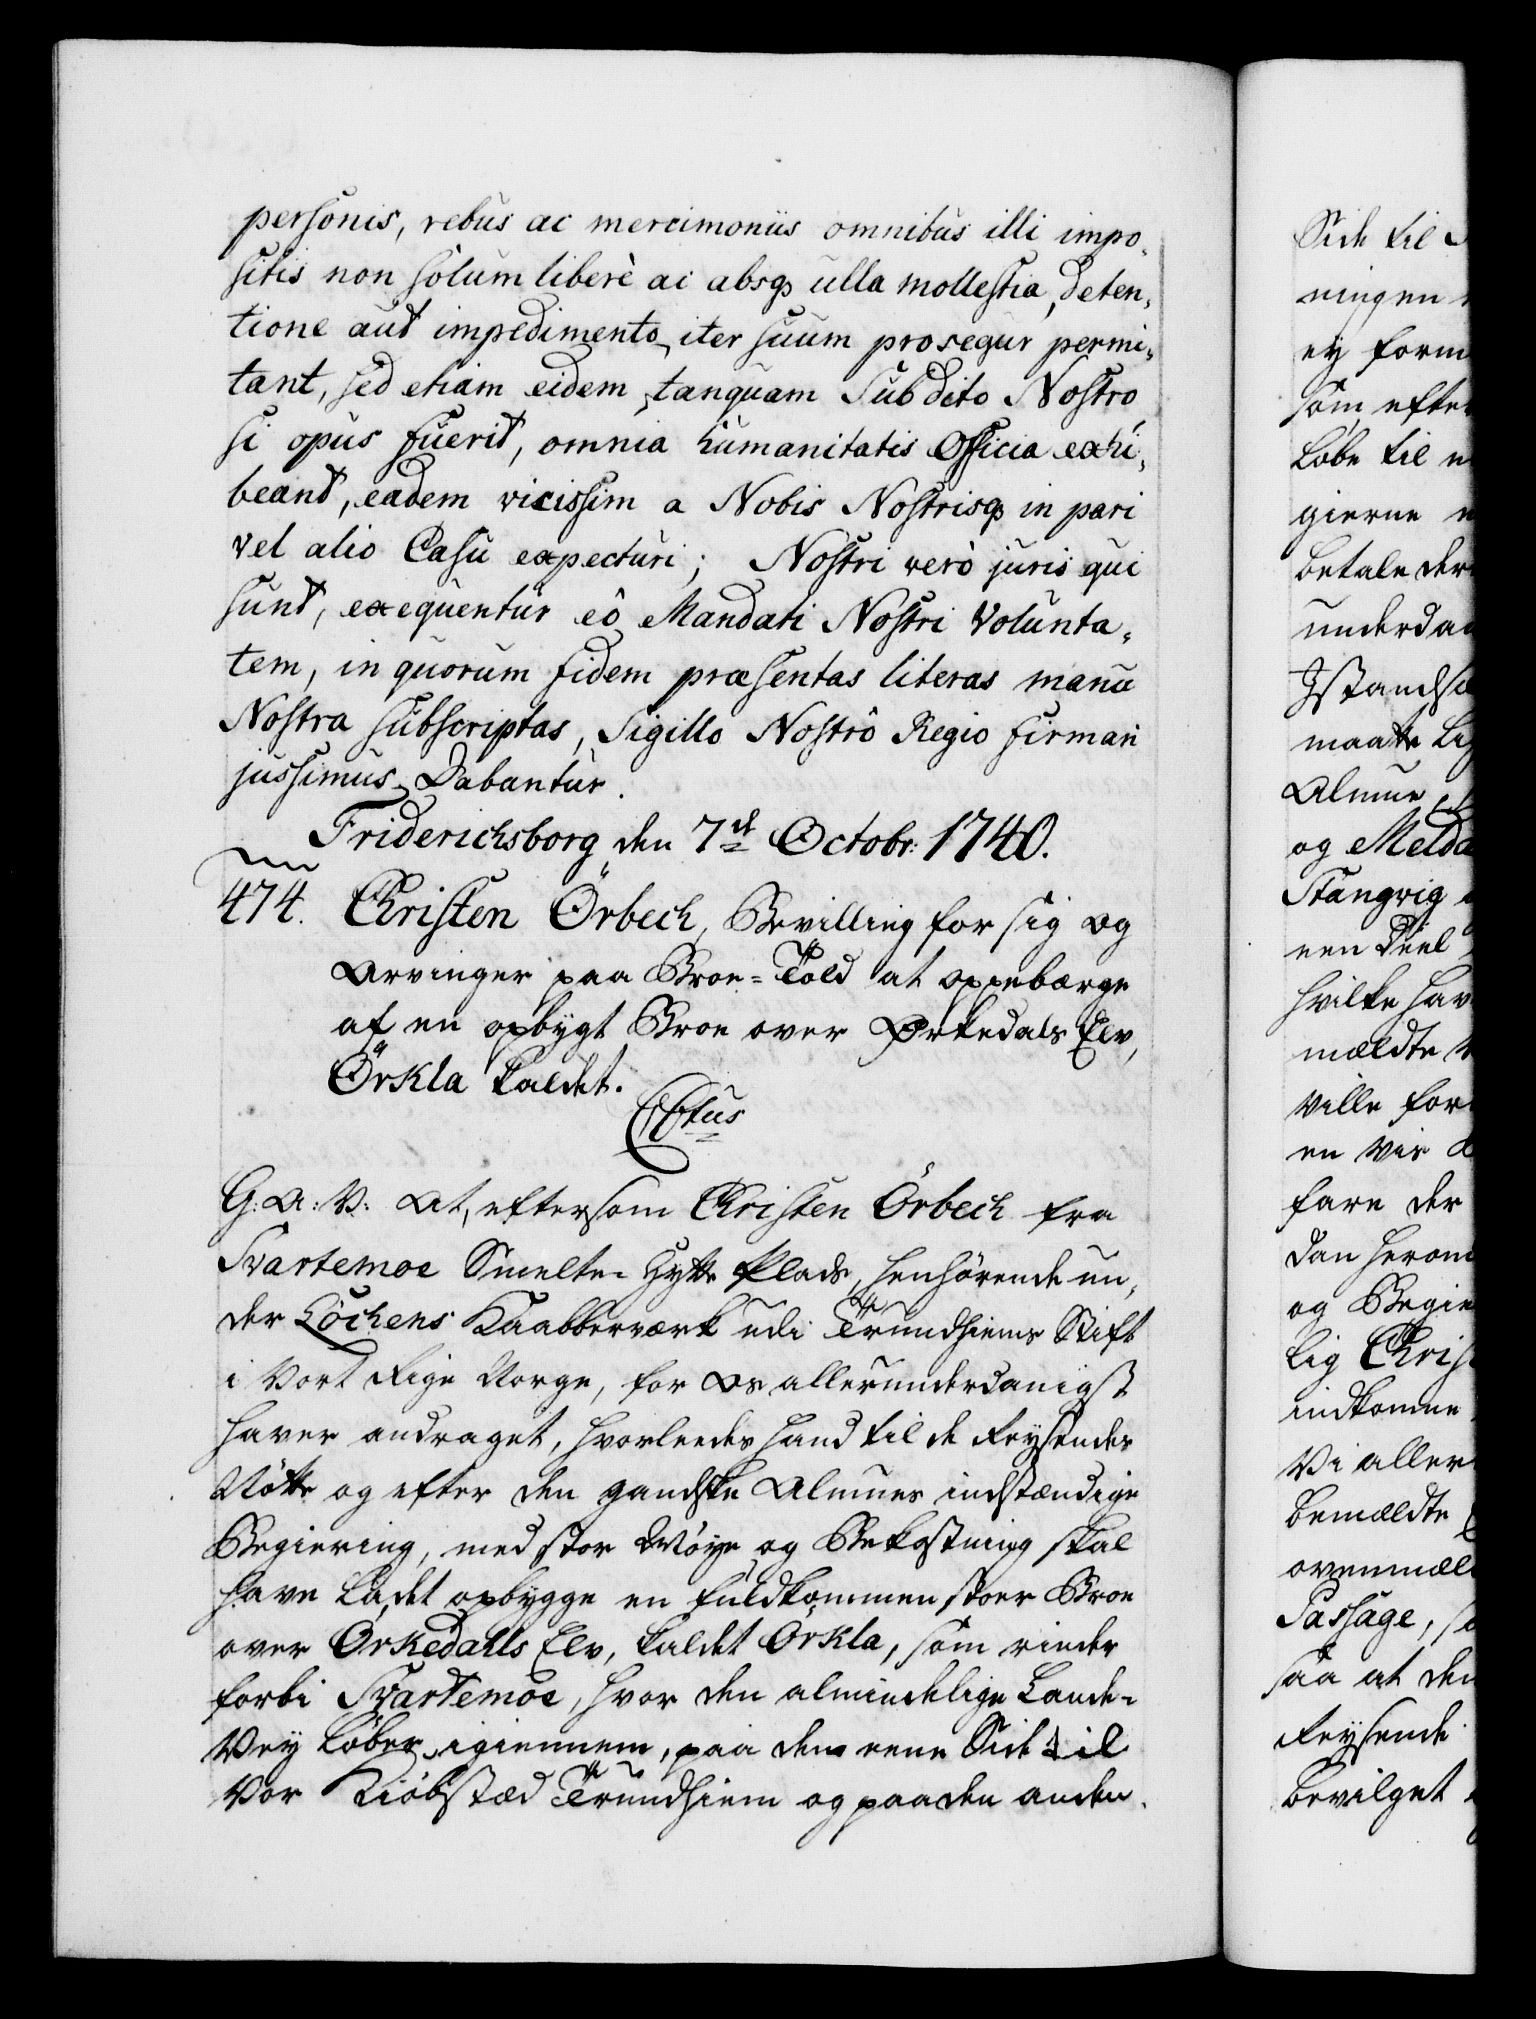 personis, rebus ac mercimoniis omnibus illi impo,
sitis non solum liberè ac absq; ulla mollestia, deten,
tione aut impedimento, iter suum prosequr permi,
tant, sed etiam eidem, tanquam Subdito Nostro
si opus fuerit, omnia humanitatis Officia exhi,
beant, eadem vicissim a Nobis Nostrisq; in pari
vel alio Casu expecturi; Nostri verò juris qui
sunt, exequentur eô Mandati Nostri Volunta,
tem, in quorum fidem præsentas literas manu
Nostra subscriptas, Sigillo Nostrô Regio firmari
jussimus, Dabantur.
Friderichsborg, den 7de Octobr: 1740.
474. Christen Örbech, Bevilling for sig og
Arvinger paa Broe-Told at oppebærge
af en opbygt Broe over Ørkedals Elv,
Örkla kaldet.
C6tus
G: A: V: At, eftersom Christen Örbech fra
Svartemoe Smelte-Hytte Plads, henhørende un,
der Löchens Kaabberværk udi Trundhiems Stift
i Vort Rige Norge, for Os allerunderdanigst
haver andraget, hvorleedes hand til de Reysendes
Nötte og efter den gandske Almues indstændige
Begiering, med stor Møye og Bekostning skal
have ladet opbygge en fuldkommen stoer Broe
over Orkedahls Elv, kaldet Örkla, som rinder
forbi Svartemoe, hvor den almindelige Lande-
Vey løber igiennem, paa den eene Side til
Vor Kiöbstæd Trundhiem og paa den anden
Side til
ningen
ey form
som efter
Løbe til
gierne
betale der
underdan
Istandsæ
maatte lig
Almue
og Melda
Stangvig
een Deel
hvilke hav
mældte
ville for
en vis
fare der
dan herom
og Begie
lig Chris
indkomne
Vi aller
bemældte
ovenmæl
Passage,
saa at den
Reysende
bevilget